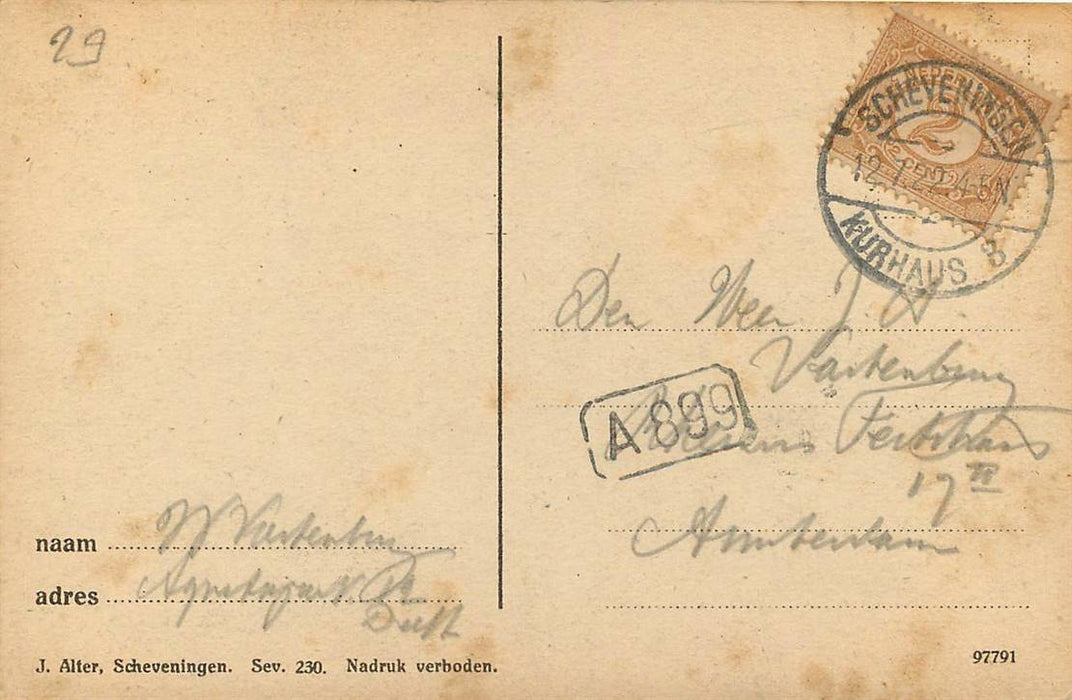 29
NEDERLAND
2
CENT
SCHEVENINGEN
12.7.22 4-5N
KURHAUS 3
Den Heer J. A.
Vastenburg
A 899
17 II
Amsterdam
naam W Vastenburg
adres
Delft
J. Alter, Scheveningen. Sev. 230. Nadruk verboden.
97791